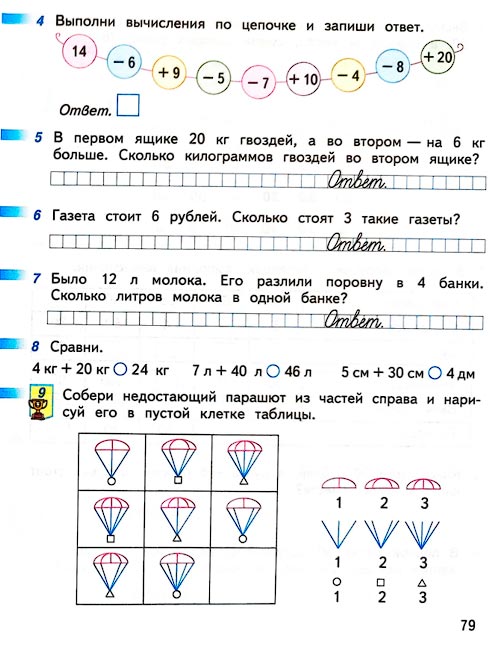 4 Выполни вычисления по цепочке и запиши ответ.
14 − 6 + 9 − 5 − 7 + 10 − 4 − 8 + 20
Ответ.
5 В первом ящике 20 кг гвоздей, а во втором — на 6 кг
больше. Сколько килограммов гвоздей во втором ящике?
Ответ.
6 Газета стоит 6 рублей. Сколько стоят 3 такие газеты?
Ответ.
7 Было 12 л молока. Его разлили поровну в 4 банки.
Сколько литров молока в одной банке?
Ответ.
8 Сравни.
4 кг + 20 кг ○ 24 кг 7 л + 40 л ○ 46 л 5 см + 30 см ○ 4 дм
9 Собери недостающий парашют из частей справа и нари-
суй его в пустой клетке таблицы.
1 2 3
1 2 3
1 2 3
79